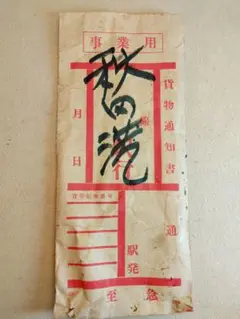 事業用
秋田港
貨物通知書
月
日
行
通
駅発
至急